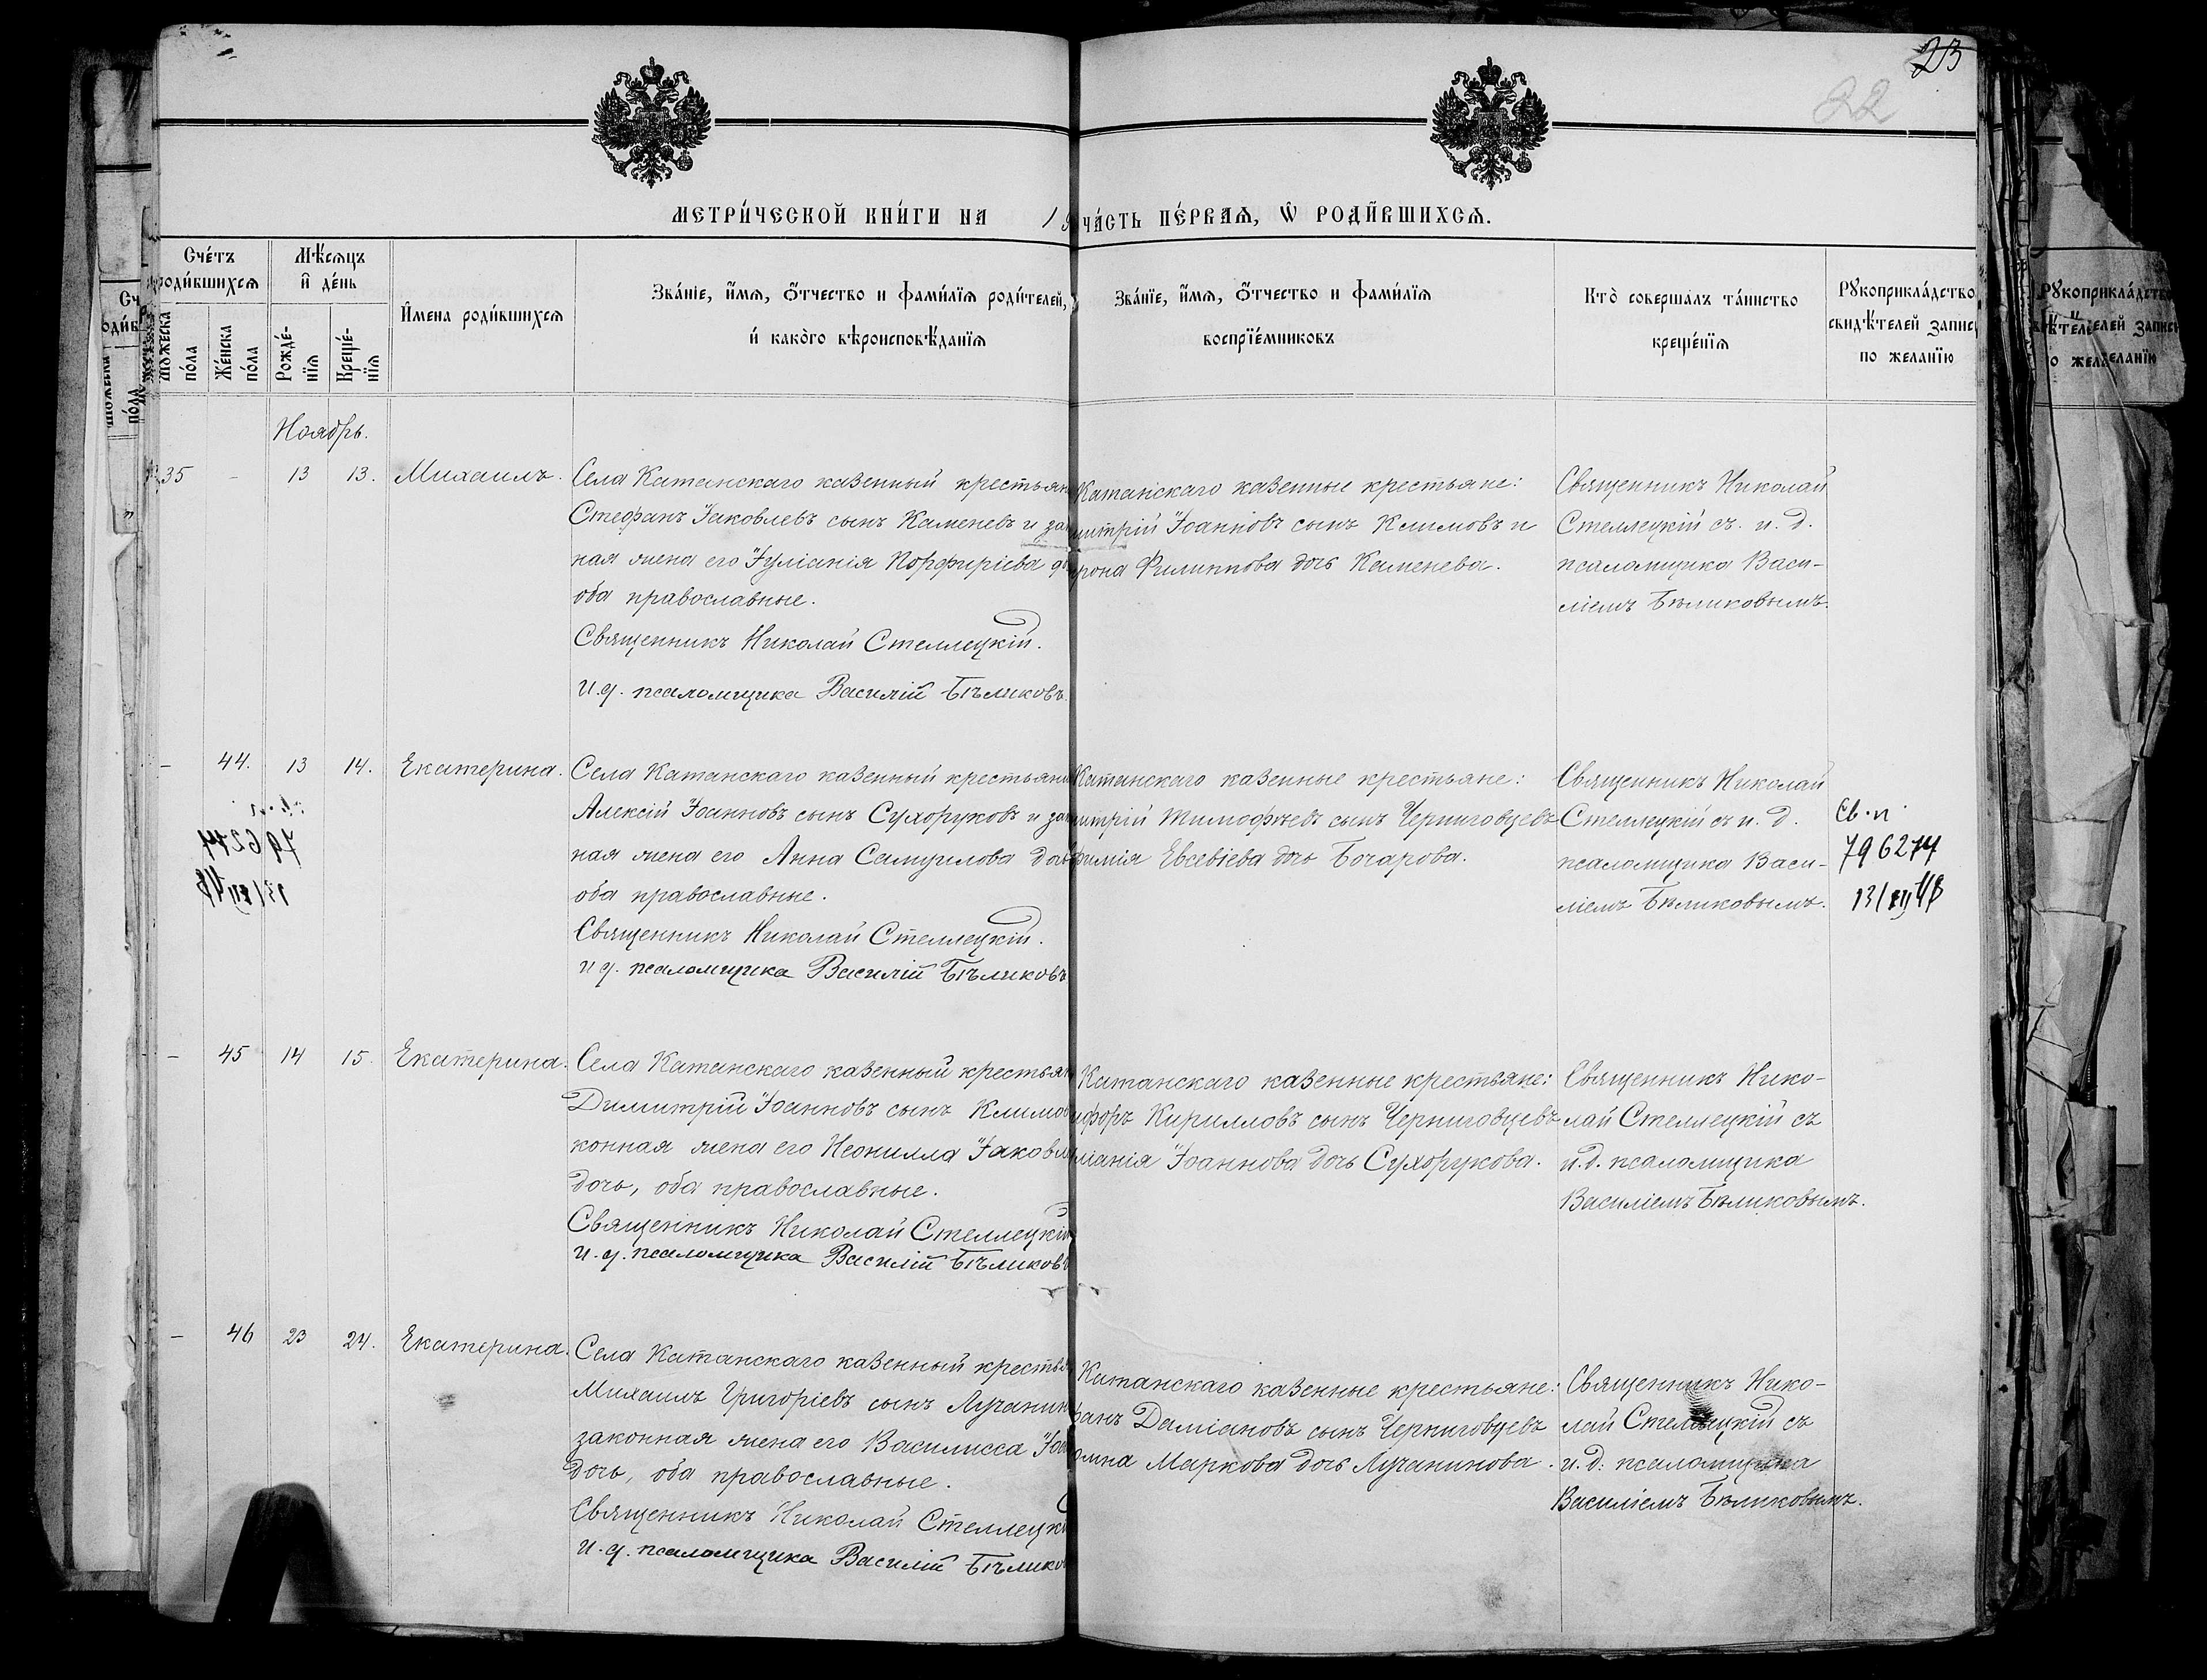 23
22
МЕТРИ́ЧЕСКОЙ КНИ́ГИ НА 19
ЧА́СТЬ ПЕ́РВАѦ, Ѡ РОДИ́ВШИХСѦ.
Сче́тъ роди́вшихсѧ
Мѣ́сѧцъ и҆ де́нь
И҆мена роди́вшихсѧ
Зва́нїе, и҆́мѧ, ѻ҆́тчество и фами́лїѧ роди́телей,
и҆ како́го вѣроисповѣ́данїѧ
Зва́нїе, и҆́мѧ, ѻ҆́тчество и фами́лїѧ
воспрїе́мниковъ
Кто̀ соверша́лъ та́инство
креще́нїѧ
Рꙋкоприкла́дство
свидѣ́телей запис
по жела́нїю
Мꙋ́жеска по́ла
Же́нска по́ла
Рожде́-нїѧ
Креще́-нїѧ
Ноябрь.
35 - 13 13. Михаилъ.
Села Катанскаго казенный крестьян
Стефанъ Іаковлевъ сынъ Каменевъ и зак
ная жена его Іуліанія Порфиріева до
оба православные.
Священникъ Николай Стеллецкій.
И.д. псаломщика Василій Бѣликовъ.
Катанскаго казенные крестьяне:
митрій Іоанновъ сынъ Климовъ и
рона Филиппова дочь Каменева.
Священникъ Николай
Стеллецкій съ и. д.
псаломщика Васи-
ліемъ Бѣликовымъ.
- 44. 13 14. Екатерина.
Села Катанскаго казенный крестьяни
Алексій Іоанновъ сынъ Сухоруковъ и зак
ная жена его Анна Самуилова дочь
оба православные.
Священникъ Николай Стеллецкій.
И д. псаломщика Василій Бѣликовъ
Катанскаго казенные крестьяне:
митрій Тимофѣевъ сынъ Черниговцевъ
фимія Евсевіева дочь Бочарова.
Священникъ Николай
Стеллецкій съ и. д.
псаломщика Васи-
ліемъ Бѣликовымъ.
Св. п
- 45 14 15. Екатерина.
Села Катанскаго казенный крестьян
Димитрій Іоанновъ сынъ Климов
конная жена его Неонилла Іаковл
дочь, оба православные.
Священникъ Николай Стеллецкій
И. д. псаломщика Василій Бѣликовъ
Катанскаго казенные крестьяне:
ифоръ Кирилловъ сынъ Черниговцевъ
ліанія Іоаннова дочь Сухорукова.
Священникъ Нико-
лай Стеллецкій съ
и. д. псаломщика
Василіемъ Бѣликовымъ.
- 46 23 24. Екатерина.
Села Катанскаго казенный крестья
Михаилъ Григоріевъ сынъ Лучанин
законная жена его Василисса Іоа
дочь, оба православные.
Священникъ Николай Стеллецкі
И. д. псаломщика Василій Бѣлико
Катанскаго казенные крестьяне:
фанъ Даміановъ сынъ Черниговцевъ
омна Маркова дочь Лучанинова.
Священникъ Нико-
лай Стеллецкій съ
и. д. псаломщика
Василіемъ Бѣликовымъ.